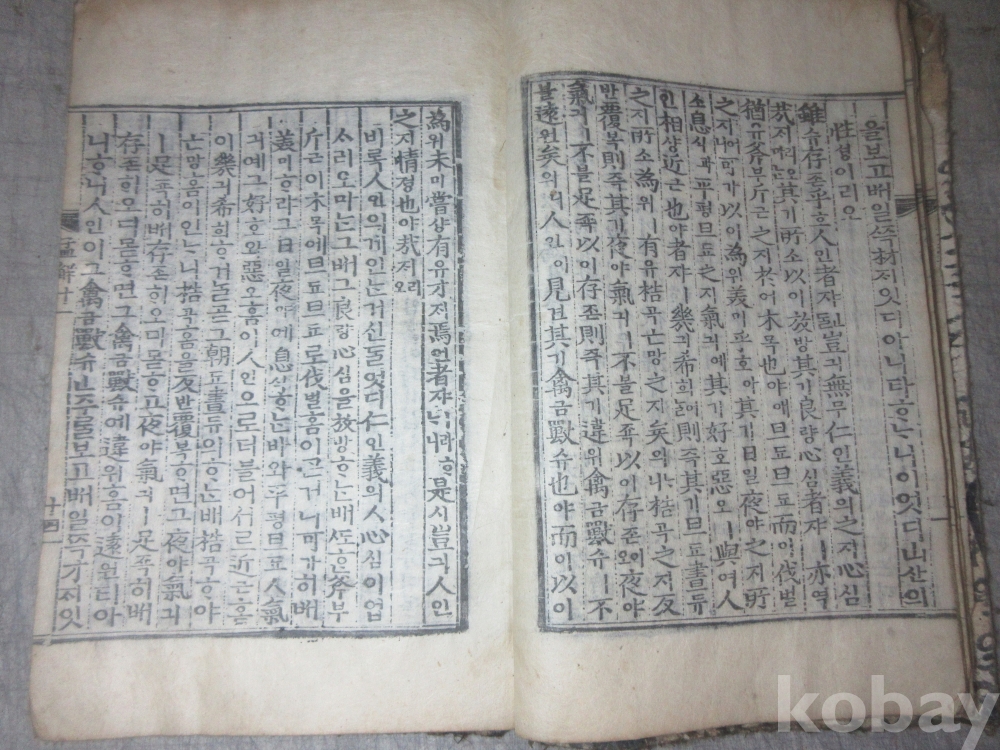 을보고배일쯕材ᄌᆡ잇디아니타ᄒᆞᄂᆞ니이엇디山산의
性셩이리오
雖슈存존乎호人인者쟈ㅣᆫᄃᆞᆯ豈긔無무仁인義의之지心심
哉ᄌᆡ리오마ᄂᆞᆫ其기所소以이放방其기良량心심者쟈ㅣ亦역
猶유斧부斤근之지於어木목也야애旦됴旦됴而이伐벌
之지어니可가以이為위美미乎호아其기日일夜야之지所
소息식과平평旦됴之지氣긔예其기好호惡오ㅣ與여人
인相샹近근也야者쟈ㅣ幾긔希희어ᄂᆞᆯ則즉其기旦됴晝듀
之지所소為위ㅣ有유梏곡亡망之지矣의니梏곡之지反
반覆복則즉其기夜야氣긔ㅣ不블足죡以이存존이오夜야
氣긔ㅣ不블足죡以이存존則즉其기違위禽금獸슈ㅣ不
블遠원矣의니人인이見견其기禽금獸슈也야而이以이
為위未미嘗샹有유才ᄌᆡ焉언者쟈ㅣ라ᄒᆞᄂᆞ니是시豈긔人인
之지情졍也야哉ᄌᆡ리오
비록人인의게인ᄂᆞᆫ거신ᄃᆞᆯ엇디仁인義의ㅅ心심이업
스리오마ᄂᆞᆫ그배그良량心심을放방ᄒᆞᄂᆞᆫ배ᄯᅩᄒᆞᆫ斧부
斤근이木목에旦됴旦됴로伐벌홈이ᄀᆞᆮ거니可가히배
美미ᄒᆞ랴그日일夜야애息식ᄒᆞᄂᆞᆫ바와平평旦됴ㅅ氣
긔예그好호와惡오홈이人인으로더블어서르近근홈
이幾긔希희ᄒᆞ거ᄂᆞᆯ곧그朝됴晝듀의ᄒᆞᄂᆞᆫ배梏곡ᄒᆞ야
亡망홈이인ᄂᆞ니梏곡홈을反반覆복ᄒᆞ면그夜야氣긔
ㅣ足죡히배存존히오미몯ᄒᆞ고夜야氣긔ㅣ足죡히배
存존히오미몯ᄒᆞ면그禽금獸슈에違위홈이遠원티아
니ᄒᆞ니人인이그禽금獸슈ㅣᆫ주를보고배일쯕才ᄌᆡ잇
孟解十一
十四
kobay